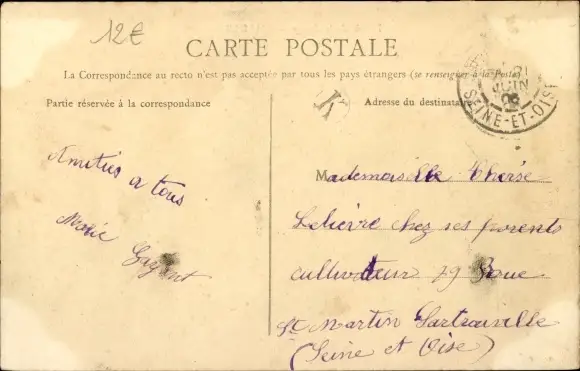 12€
CARTE POSTALE
La Correspondance au recto n'est pas acceptée par tous les pays étrangers (se renseigner à la Poste)
Partie réservée à la correspondance
Adresse du destinataire
K
21
JUIN
05
SEINE-ET-OISE
Amitiés a tous
Marie
Mademoiselle Therèse
Lelièvre chez ses parents
cultivateur 79 Roue
St Martin Sartrouville
(Seine et Oise)